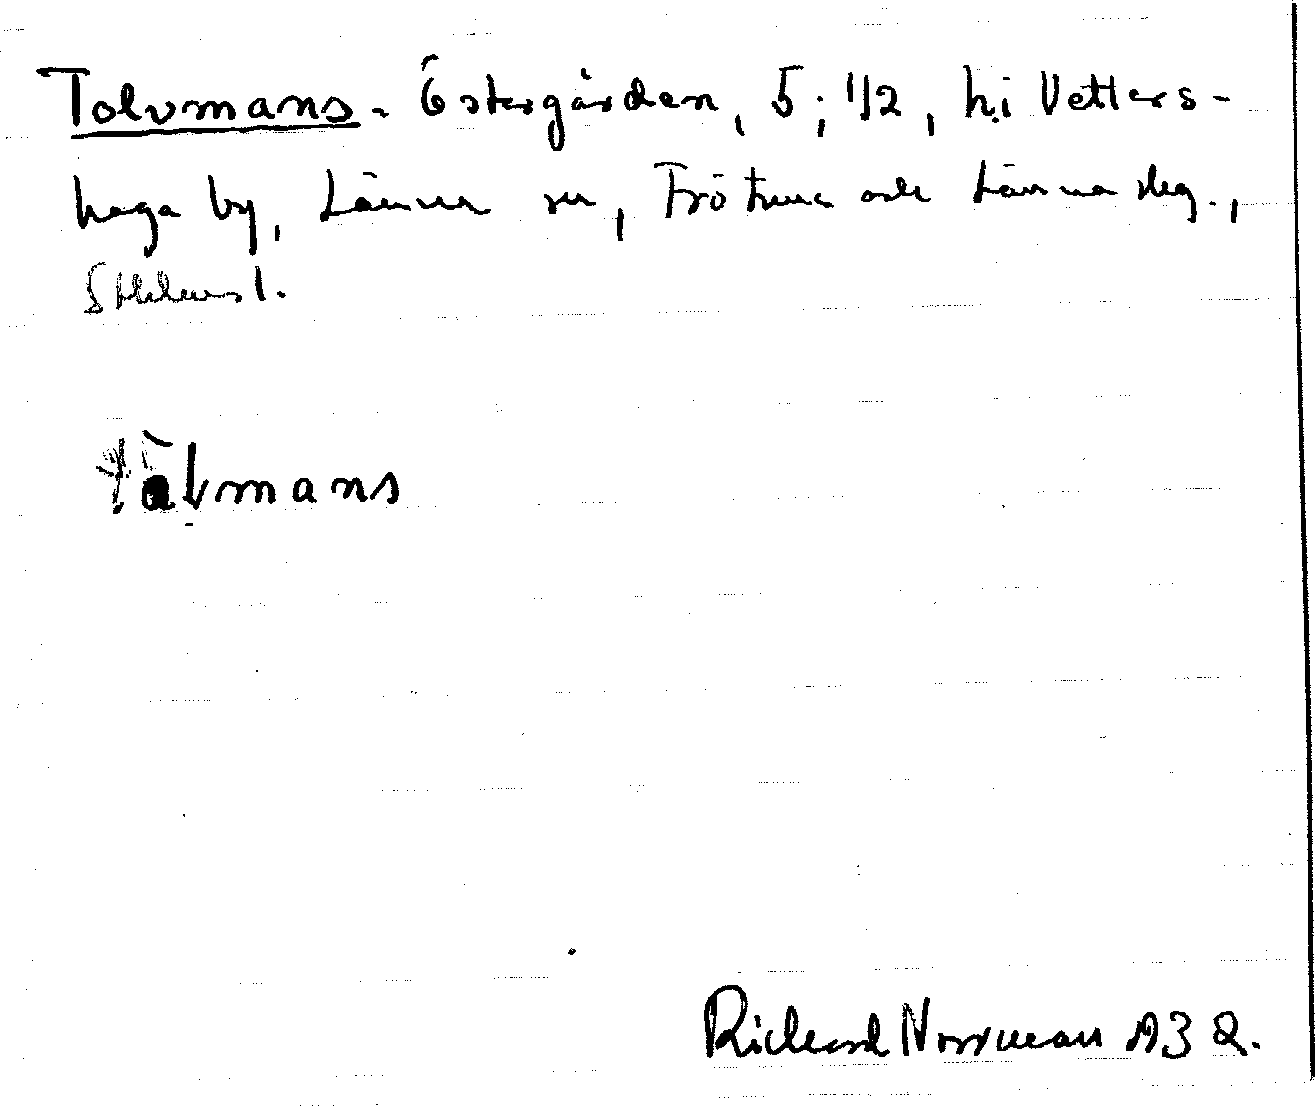 Tolvmans. Östergården, 5; 1/2, hi Vetters-
haga by, Länna sn, Frötuna och Länna slg.,
Sthlms l.
tålvmans
Richard Norrman 1932.